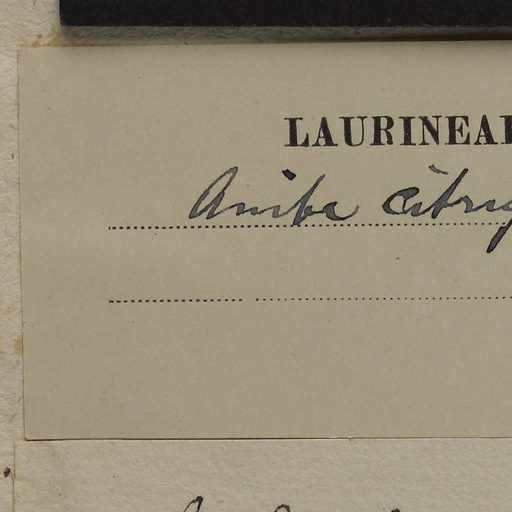 LAURINEAE
Aniba citrif